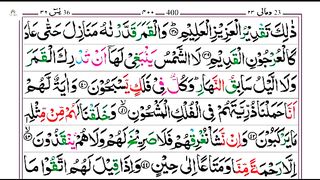 36 يٰسٓ ٣٦ 400 ٤٠٠ 23 ومالى ٢٣
ذٰلِكَ تَقْدِيْرُ الْعَزِيْزِ الْعَلِيْمِ ﴿٣٨﴾ وَالْقَمَرَ قَدَّرْنٰهُ مَنَازِلَ حَتّٰى عَادَ
كَالْعُرْجُوْنِ الْقَدِيْمِ ﴿٣٩﴾ لَا الشَّمْسُ يَنْۢبَغِيْ لَهَاۤ اَنْ تُدْرِكَ الْقَمَرَ
وَلَا الَّيْلُ سَابِقُ النَّهَارِ ؕ وَكُلٌّ فِيْ فَلَكٍ يَّسْبَحُوْنَ ﴿٤٠﴾ وَاٰيَةٌ لَّهُمْ
اَنَّا حَمَلْنَا ذُرِّيَّتَهُمْ فِي الْفُلْكِ الْمَشْحُوْنِ ﴿٤١﴾ وَخَلَقْنَا لَهُمْ مِّنْ مِّثْلِهٖ
مَا يَرْكَبُوْنَ ﴿٤٢﴾ وَاِنْ نَّشَاْ نُغْرِقْهُمْ فَلَا صَرِيْخَ لَهُمْ وَلَا هُمْ يُنْقَذُوْنَ ﴿٤٣﴾
اِلَّا رَحْمَةً مِّنَّا وَمَتَاعًا اِلٰى حِيْنٍ ﴿٤٤﴾ وَاِذَا قِيْلَ لَهُمُ اتَّقُوْا مَا